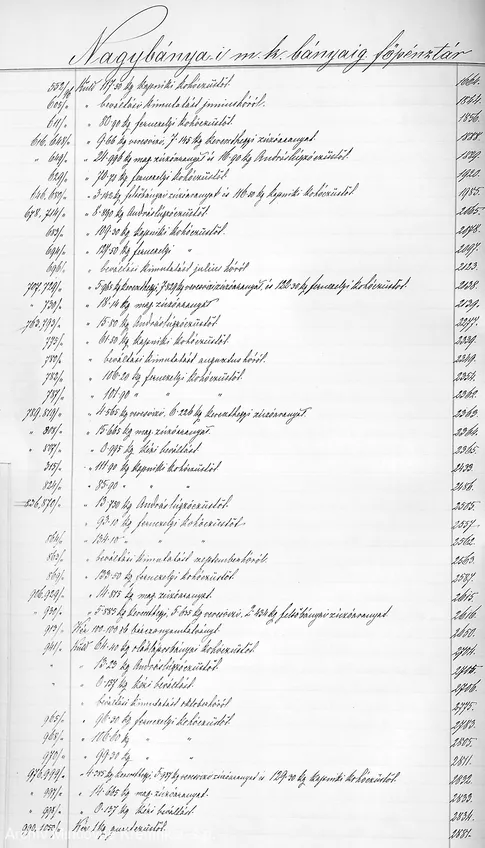 Nagybányai m. k. bányaig. főpénztár
552/96 Küld 117·30 kg kapniki kohóezüstöt. 1664.
605/" " beváltási kimutatást juniushóról. 1844.
611/" " 80·90 kg fernezelyi kohóezüstöt. 1856.
616, 648/" " 9·66 kg veresvizi, 7·145 kg kereszthegyi zúzóaranyat. 1888.
" 649/" " 24·996 kg mag. zúzóaranyat és 16·90 kg Andrásligetezüstöt. 1889.
629/" " 70·70 kg fernezelyi kohóezüstöt. 1920.
646, 680/" " 3·142 kg felsőbányai zúzóaranyat és 116·30 kg kapniki kohóezüstöt. 1985.
678, 714/" " 8·290 kg 2065.
653/" " 109·30 kg kapniki kohóezüstöt. 2078.
694/" " 127·50 kg fernezelyi " 2097.
696/" " beváltási kimutatást julius hóról 2123.
707, 729/" " kg kereszthegyi, 7·829 kg veresvizi zúzóaranyat, és 120·30 kg fernezelyi kohóezüstöt. 2138.
" 730/" " 18·14 kg mag. zúzóaranyat 2139.
763, 793/" " 15·80 kg 2277.
775/" " 61·30 kg kapniki kohóezüstöt. 2339.
780/" " beváltási kimutatást augusztus hóról. 2349.
782/" " 106·20 kg fernezelyi kohóezüstöt. 2354.
787/" " 101·90 " " " 2362.
789, 819/" " 4·565 kg veresvizi, 6·226 kg kereszthegyi zúzóaranyat 2363.
" 818/" " 15·665 kg mag. zúzóaranyat. 2364.
" 817/" " 0·995 kg házi beváltást. 2365.
815/" " 111·90 kg kapniki kohóezüstöt. 2433.
824/" " 85·90 " " " 2486.
836, 870/" " 13·730 kg 2505.
" 93·10 kg fernezelyi kohóezüstöt 2557.
864/" " 134·10 " " " 2562.
863/" " beváltási kimutatást szeptemberhóról. 2563.
869/" " 133·50 kg fernezelyi kohóezüstöt. 2587.
906, 929/" " 14·815 kg mag. zúzóaranyat. 2615.
" 930/" " 5·885 kg kereszthegyi, 5·635 kg veresvizi, 2·434 kg felsőbányai zúzóaranyat 2616.
913/" Kér 100·100 rb 2650.
941/" Küld 64·40 kg oláhláposbányai kohóezüstöt. 2701.
" " 13·23 kg 2705.
" " 0·187 kg házi beváltást. 2706.
" beváltási kimutatást októberhóról 2775.
965/" " 96·30 kg fernezelyi kohóezüstöt. 2783.
965/" " 106·60 kg " " 2805.
970/" " 99·30 kg " " 2811.
976, 999/" " kg kereszthegyi, kg veresvizi zúzóaranyat és 129·30 kg kapniki kohóezüstöt. 2832.
" 997/" " 14·665 kg mag. zúzóaranyat. 2833.
" 998/" " 0·137 kg házi beváltást. 2834.
990, 1050/" Kér 1 kg 2881.